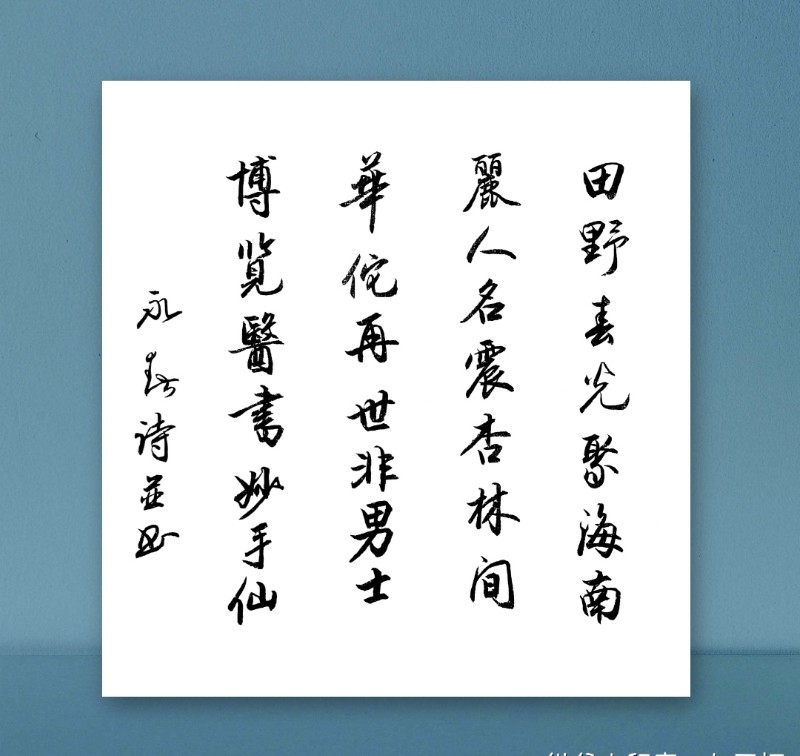 田野春光聚海南
麗人名震杏林間
華佗再世非男士
博览醫書妙手仙
永春诗並书